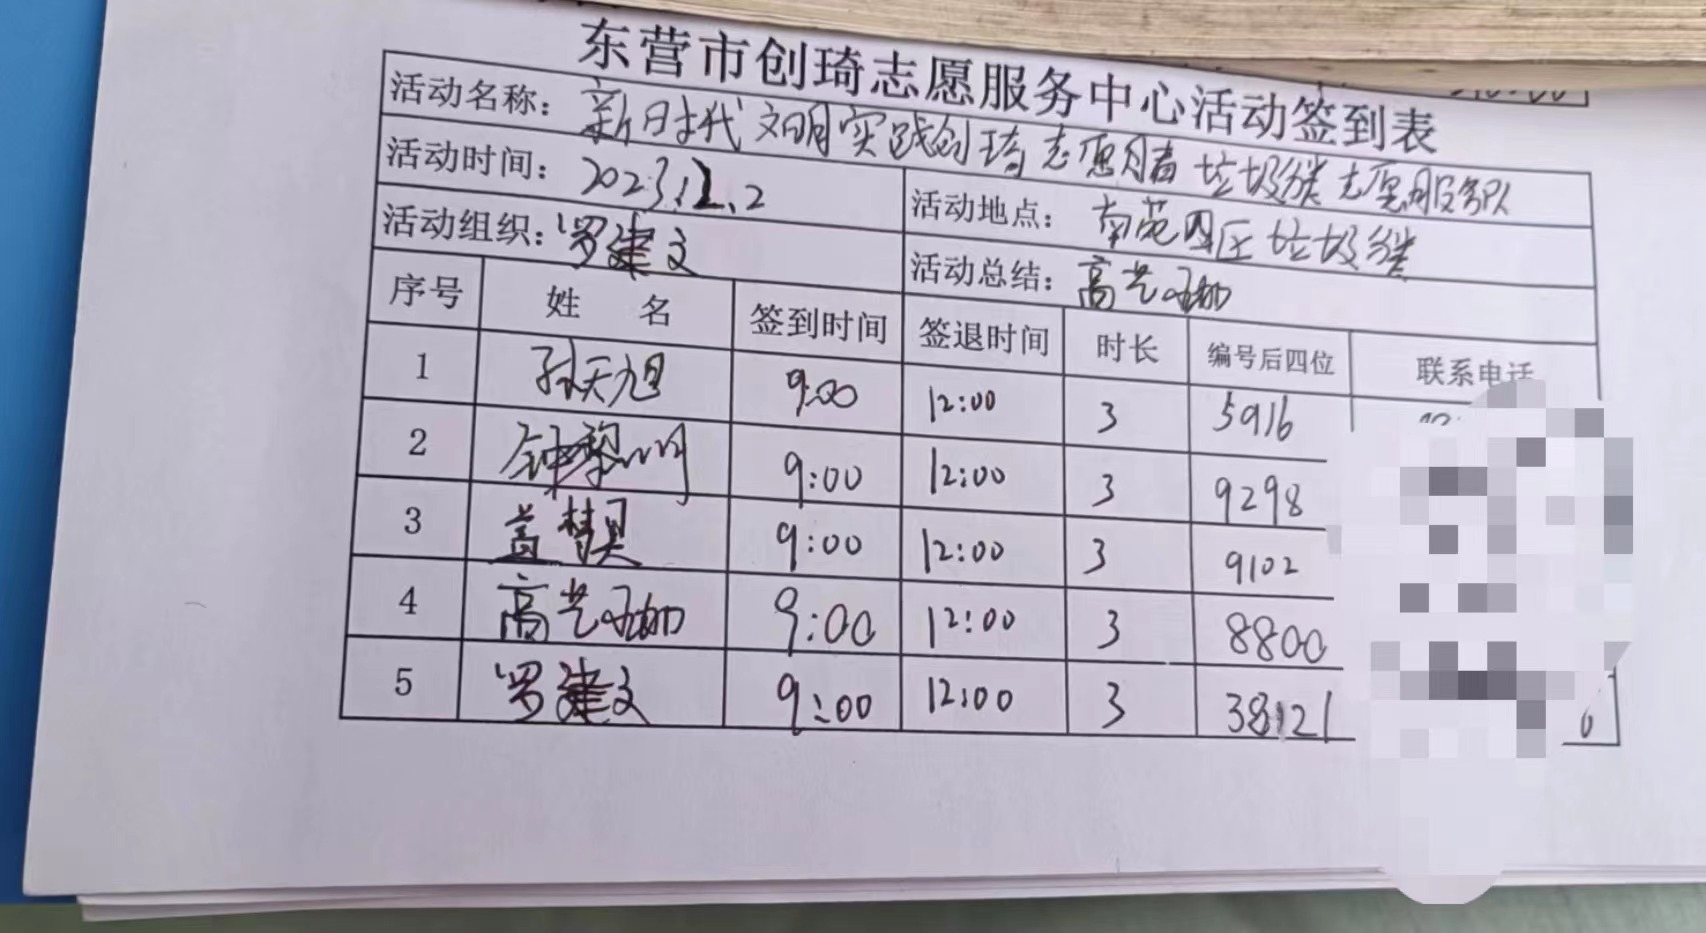 东营市创琦志愿服务中心活动签到表
活动名称：新时代文明实践创琦志愿服务垃圾分类志愿服务队
活动时间：2023.12.2 活动地点：南苑园区垃圾分类
活动组织：罗建文 活动总结：高艺珈
序号 姓名 签到时间 签退时间 时长 编号后四位 联系电话
1 孙天旭 9:00 12:00 3 5916
2 钟黎明 9:00 12:00 3 9298
3 盖慧 9:00 12:00 3 9102
4 高艺珈 9:00 12:00 3 8800
5 罗建文 9:00 12:00 3 38121